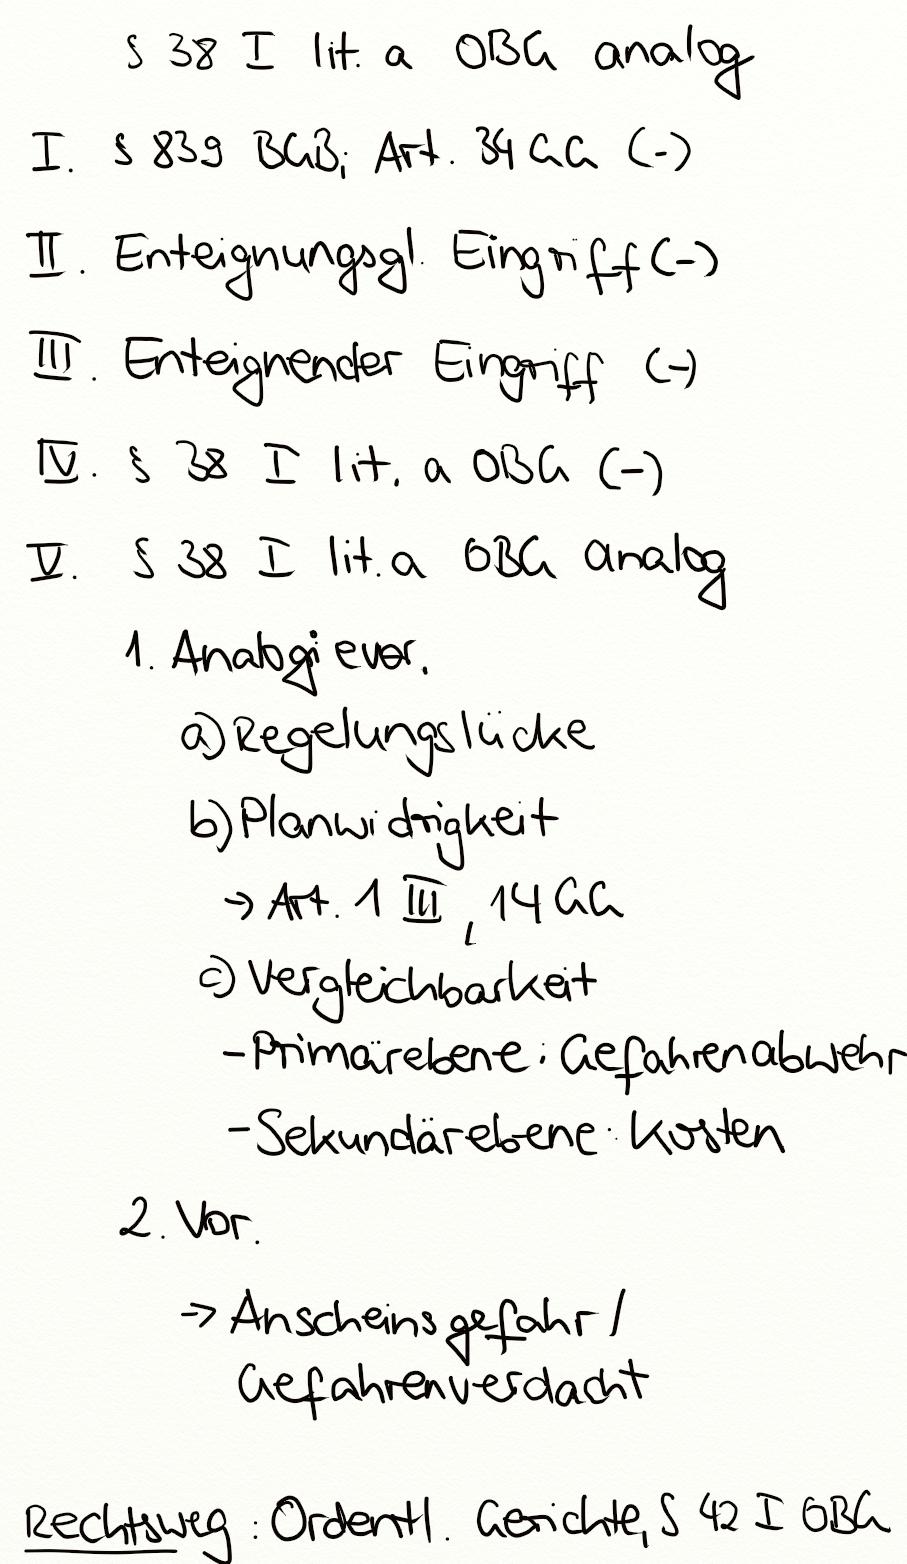 § 38 I lit. a OBG analog
I. § 839 BGB; Art. 34 GG (-)
II. Enteignungsgl. Eingriff (-)
III. Enteignender Eingriff (-)
IV. § 38 I lit. a OBG (-)
V. § 38 I lit. a OBG analog
1. Analogievor.
a) Regelungslücke
b) Planwidrigkeit
→ Art. 1 III, 14 GG
c) Vergleichbarkeit
- Primärebene: Gefahrenabwehr
- Sekundärebene: Kosten
2. Vor.
→ Anscheinsgefahr /
Gefahrenverdacht
Rechtsweg: Ordentl. Gerichte, § 42 I OBG